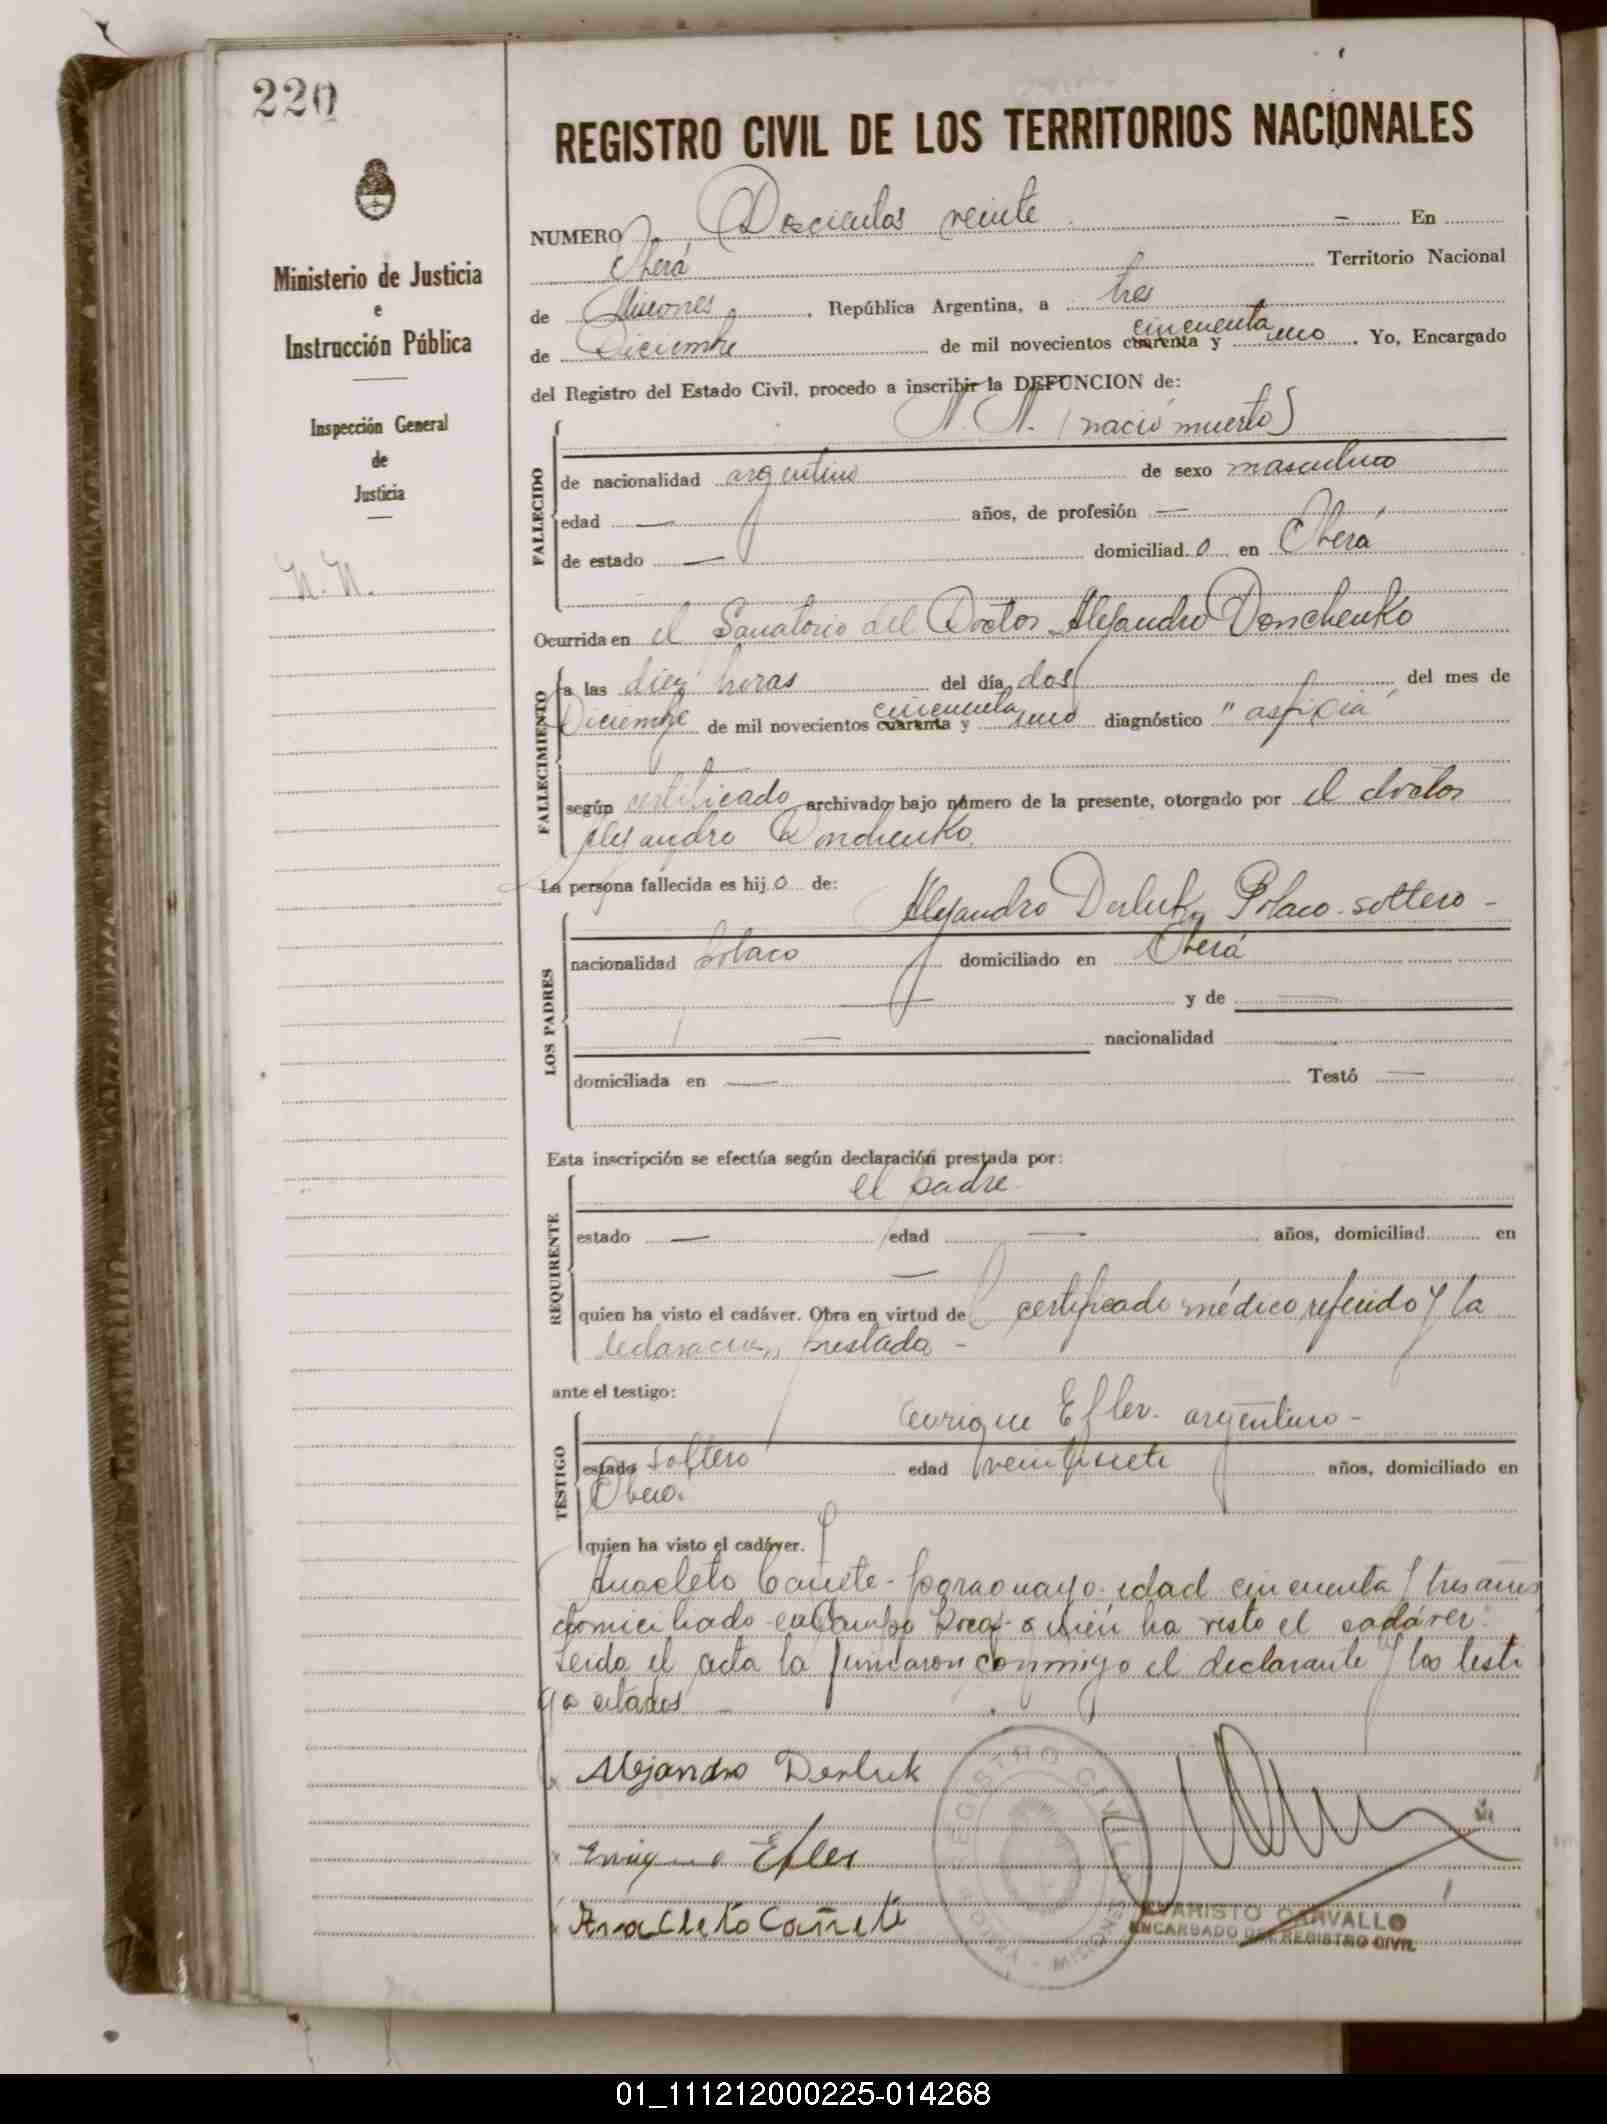 220
REGISTRO CIVIL DE LOS TERRITORIOS NACIONALES
Ministerio de Justicia
e
Instrucción Pública
Inspección General
de
Justicia
N. N.
NUMERO Doscientos veinte — En
Oberá Territorio Nacional
de Misiones, República Argentina, a tres
de Diciembre de mil novecientos cuarenta cincuenta y uno. Yo, Encargado
del Registro del Estado Civil, procedo a inscribir la DEFUNCION de:
N. N. (nació muerto)
FALLECIDO
de nacionalidad argentino de sexo masculino
edad — años, de profesión —
de estado — domiciliad o en Oberá
Ocurrida en el Sanatorio del Doctor Alejandro Donchenko
FALLECIMIENTO
a las diez horas del día dos del mes de
Diciembre de mil novecientos cuarenta cincuenta y uno diagnóstico "asfixia"
según certificado archivado bajo número de la presente, otorgado por el doctor
Alejandro Donchenko.
La persona fallecida es hij o de:
LOS PADRES
Alejandro Derluk, Polaco - soltero -
nacionalidad polaco domiciliado en Oberá
— y de —
— nacionalidad
domiciliada en — Testó —
Esta inscripción se efectúa según declaración prestada por:
REQUIRENTE
el padre
estado — edad — años, domiciliad en
—
quien ha visto el cadáver. Obra en virtud de certificado médico referido y la
declaración prestada -
ante el testigo:
TESTIGO
Enrique Efler. argentino -
estado soltero edad veintisiete años, domiciliado en
Oberá.
quien ha visto el cadáver.
Anacleto Cañete - paraguayo - edad cincuenta y tres años
domiciliado en Campo quién ha visto el cadáver.
Leída el acta la firmaron conmigo el declarante y los testi
gos citados —
Alejandro Derluk
Enrique Efler
Anacleto Cañete
REGISTRO CIVIL
OBERA - MISIONES
EVARISTO CARVALLO
ENCARGADO DEL REGISTRO CIVIL
01_111212000225-014268